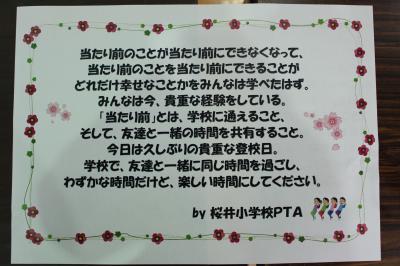 当たり前のことが当たり前にできなくなって、
当たり前のことを当たり前にできることが
どれだけ幸せなことかをみんなは学べたはず。
みんなは今、貴重な経験をしている。
「当たり前」とは、学校に通えること、
そして、友達と一緒の時間を共有すること。
今日は久しぶりの貴重な登校日。
学校で、友達と一緒に同じ時間を過ごし、
わずかな時間だけど、楽しい時間にしてください。
by 桜井小学校PTA